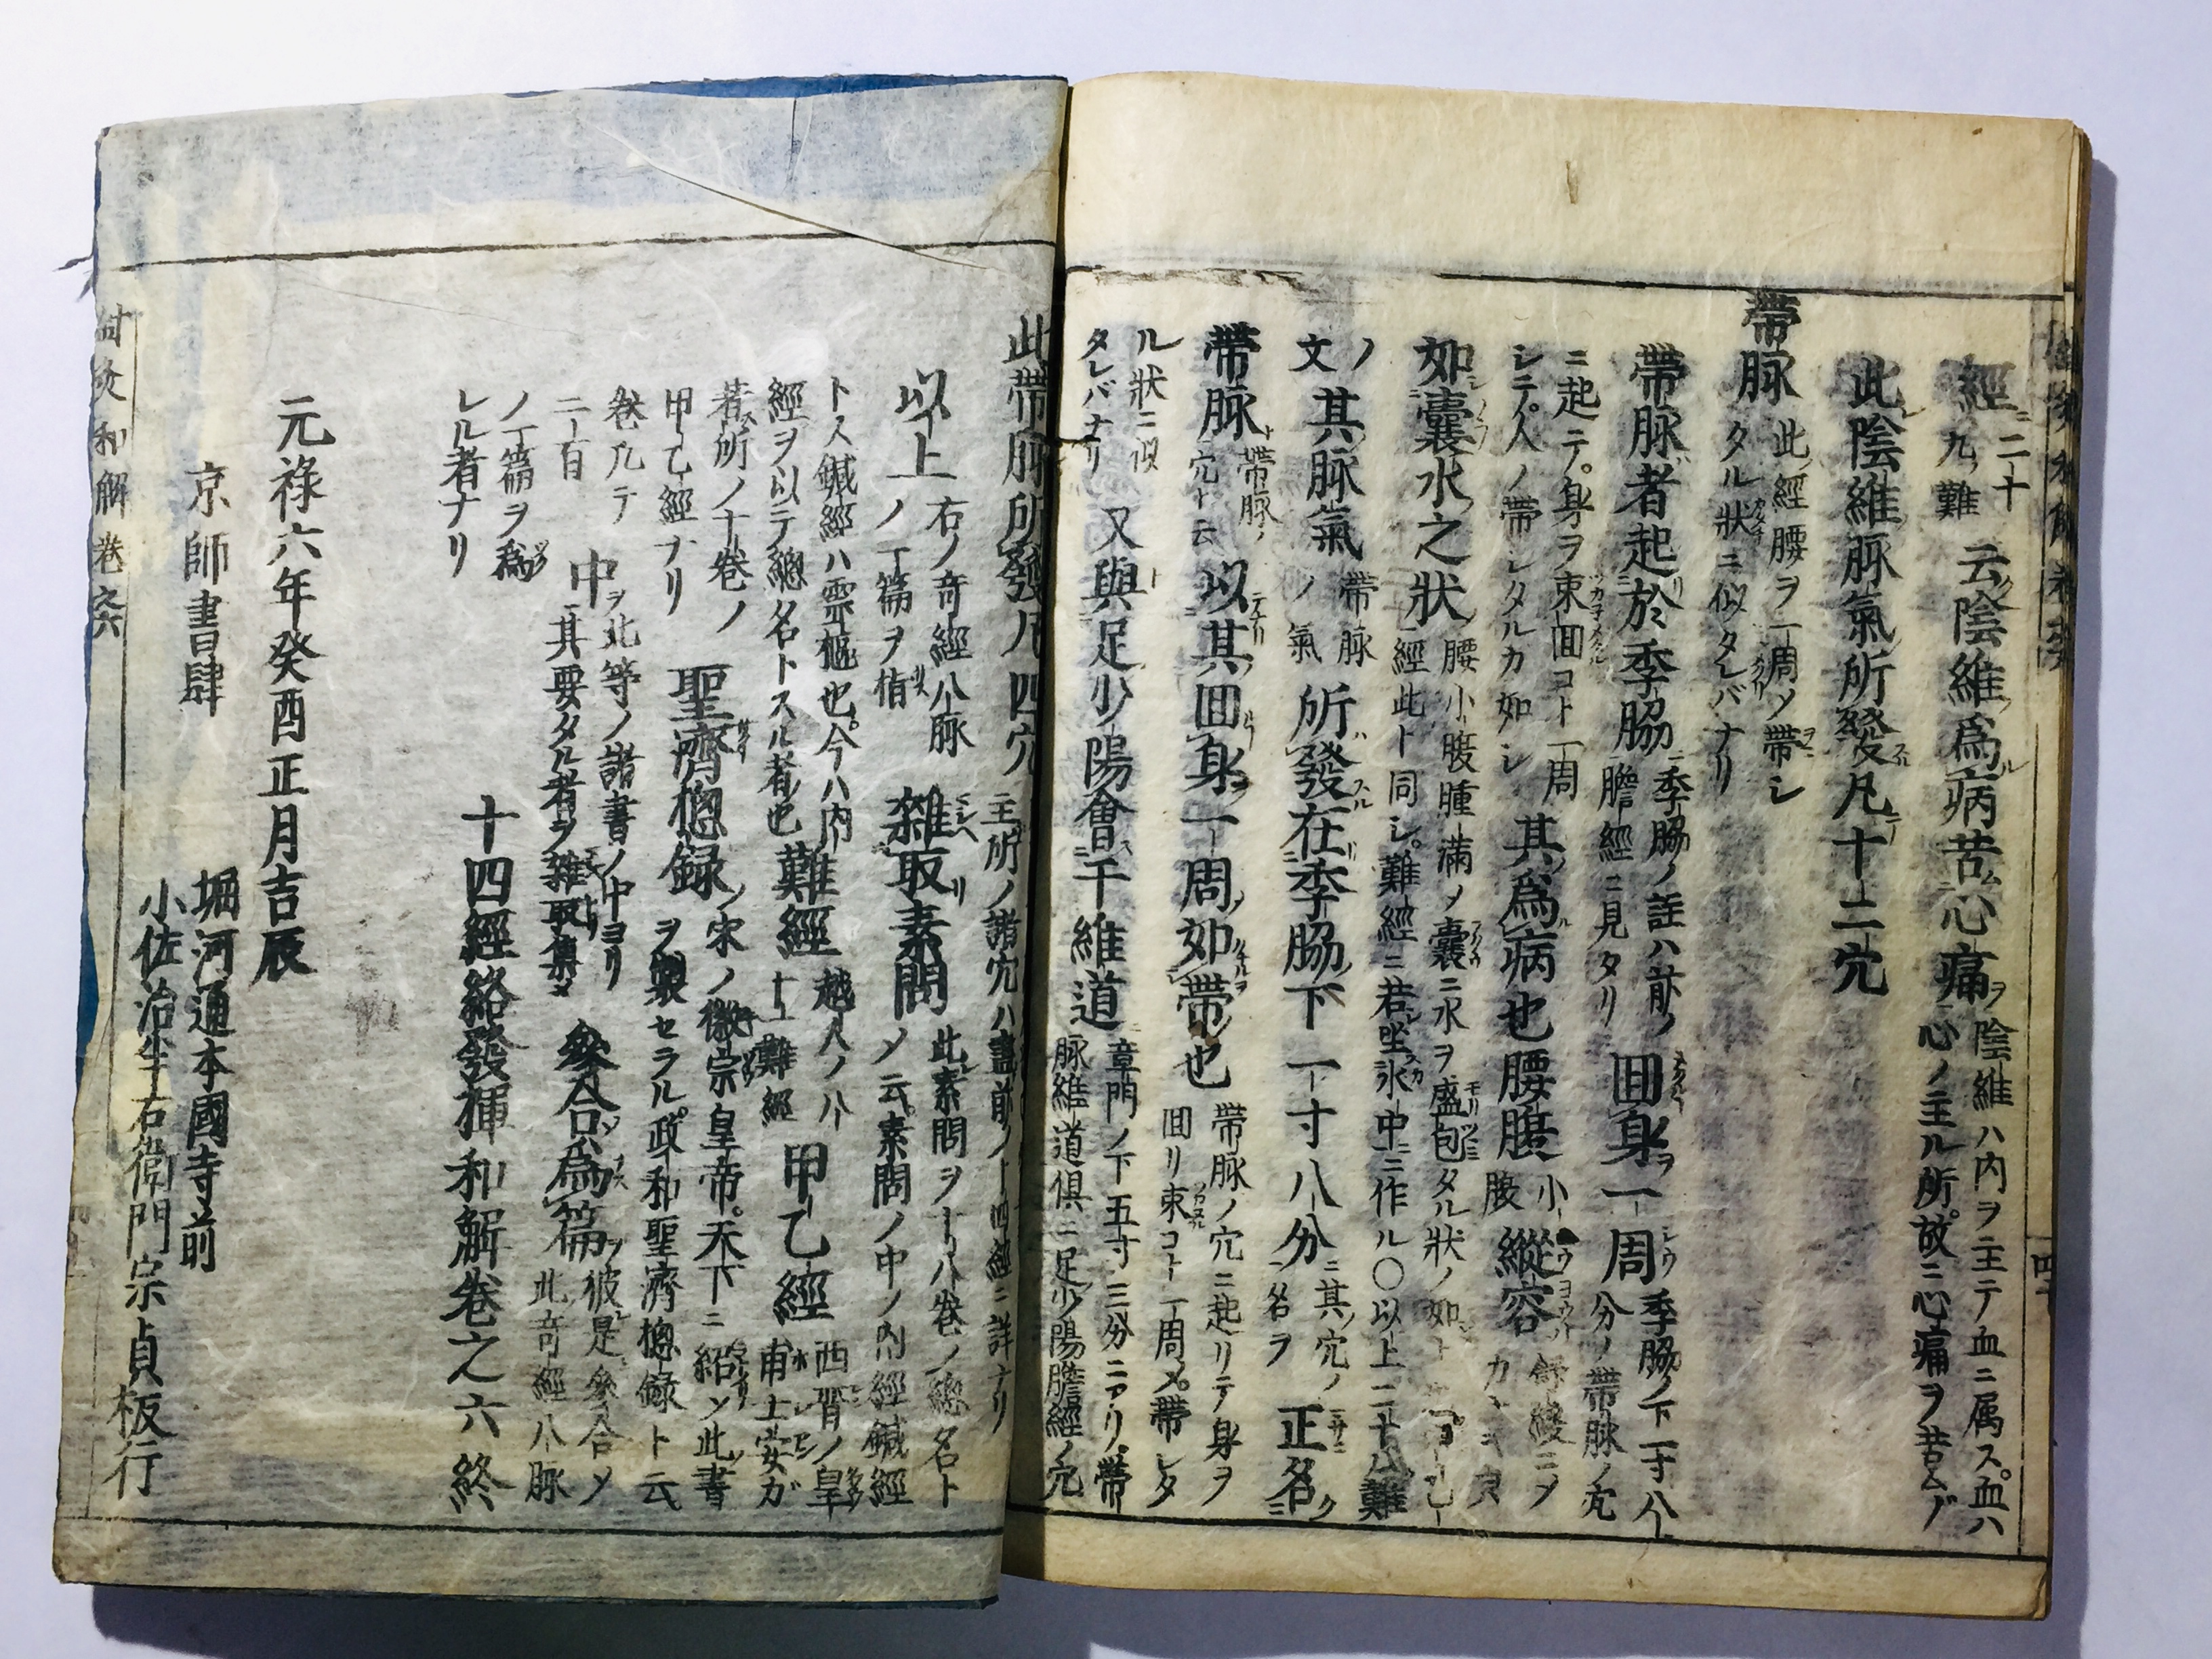 經二十九ノ難云陰維爲病苦心痛ヲ陰維ハ内ヲ主テ血ニ属ス。血ハ心ノ主ル所。故ニ心痛ヲ苦ム
此陰維脉氣所發凡十二穴
帶脉此ノ經腰ヲ一周メ帶シタル狀ニ似タレバナリ
帶脉者起於季脇季脇ノ註ハ前ノ膽經ニ見タリ回身一周季脇ノ下一寸八分ノ帶脉ノ穴
ニ起テ。身ヲ束回コト一周シテ。人ノ帶シタルカ如シ其爲病也腰腹小腹縱容
如囊水之狀腰小腹腫滿メ囊ニ水ヲ盛包タル狀ノ如經此ト同シ。難經ニ若坐水中ニ作ル〇以上二十八難
ノ文其脉氣帶脉ノ氣所發在季脇下一寸八分ニ其穴ノ名ヲ正名
帶脉帶脉ノ穴ト云以其回身一周如帶也帶脉ノ穴ニ起リテ身ヲ回リ束コト一周メ。帶シタ
ル狀ニ似タレバナリ又與足少陽會于維道章門ノ下五寸三分ニアリ。帶脉維道倶ニ足少陽膽經ノ穴
此帶脉所發凡四穴主所ノ諸穴ハ盡前ノ十四經ニ詳ナリ
以上右ノ奇經八脉ノ一篇ヲ指雜取素問此素問ヲ十八卷ノ總名トメ云。素問ノ中ノ内經鍼經
トス鍼經ハ霊樞也。今ハ内經ヲ以テ總名トスル者也難經越人ノ八十一難經甲乙經西晉ノ皇甫士安ガ
著所ノ十卷ノ甲乙經ナリ聖濟總録ノ宋ノ徽宗皇帝。天下ニ紹シ此書ヲ製セラル。政和聖濟總録ト云
卷凡テ二百中ヲ此等ノ諸書ノ中ヨリ其要タル者ヲ雜取集メ參合爲篇ヲ彼是參合メ此奇經八脉
ノ一篇ヲ爲レル者ナリ
十四經絡發揮和解卷之六終
元祿六年癸酉正月吉辰
京師書肆
堀河通本國寺前
小佐治半右衛門宗貞板行
和解卷六